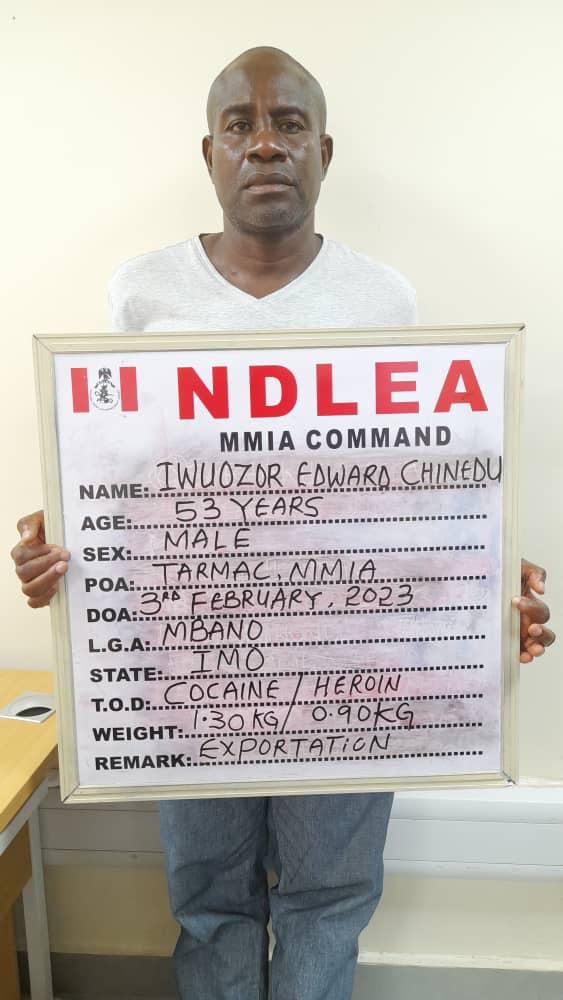 NDLEA
MMIA COMMAND
NAME: IWUOZOR EDWARD CHINEDU
AGE: 53 YEARS
SEX: MALE
POA: TARMAC, MMIA
DOA: 3RD FEBRUARY, 2023
L.G.A: MBANO
STATE: IMO
T.O.D: COCAINE / HEROIN
WEIGHT: 1.30 KG / 0.90KG
REMARK: EXPORTATION